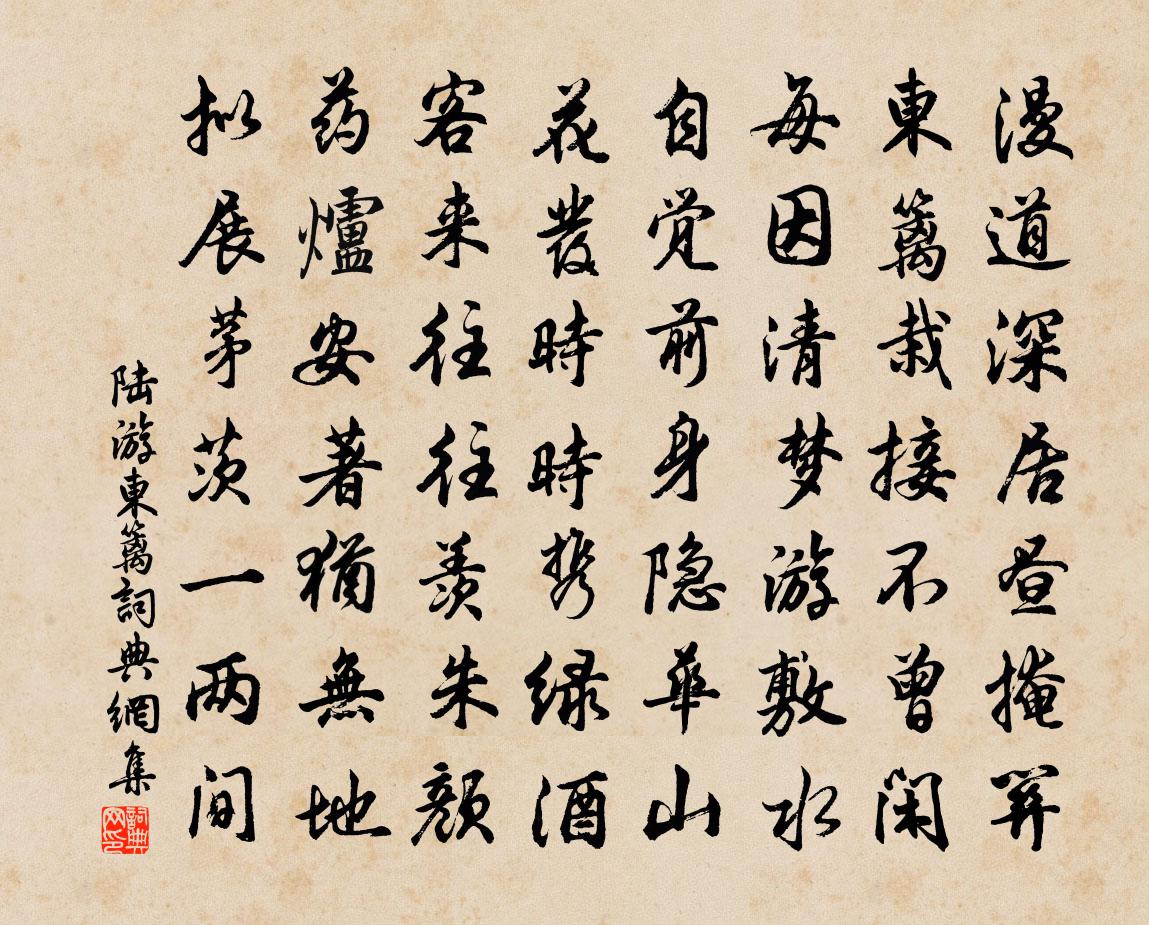 漫道深居昼掩关
東篱栽接不曾闲
每因清梦游敷水
自觉前身隐華山
花發時時携绿酒
客来往往羡朱颜
药爐安著猶無地
拟展茅茨一两间
陆游東篱詞典網集
詞典网印